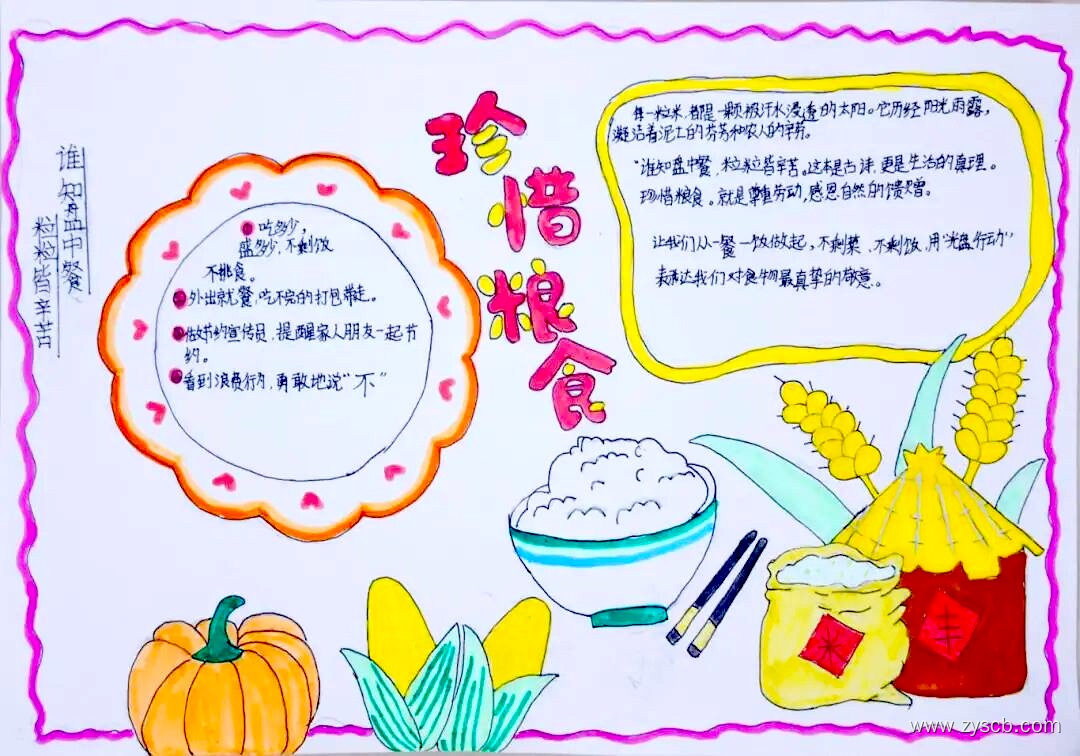 珍惜粮食
谁知盘中餐
粒粒皆辛苦
吃多少,
盛多少,不剩饭
不挑食。
外出就餐,吃不完的打包带走。
做节约宣传员,提醒家人朋友一起节
约。
看到浪费行为,勇敢地说“不”
每一粒米,都是一颗被汗水浸透的太阳。它历经阳光雨露,
凝结着泥土的芬芳和农人的辛劳。
“谁知盘中餐,粒粒皆辛苦。这不是古诗,更是生活的真理。
珍惜粮食。就是尊重劳动,感恩自然的馈赠。
让我们从一餐一饭做起,不剩菜、不剩饭,用“光盘行动”
表达我们对食物最真挚的敬意。
丰
www.zyscb.com